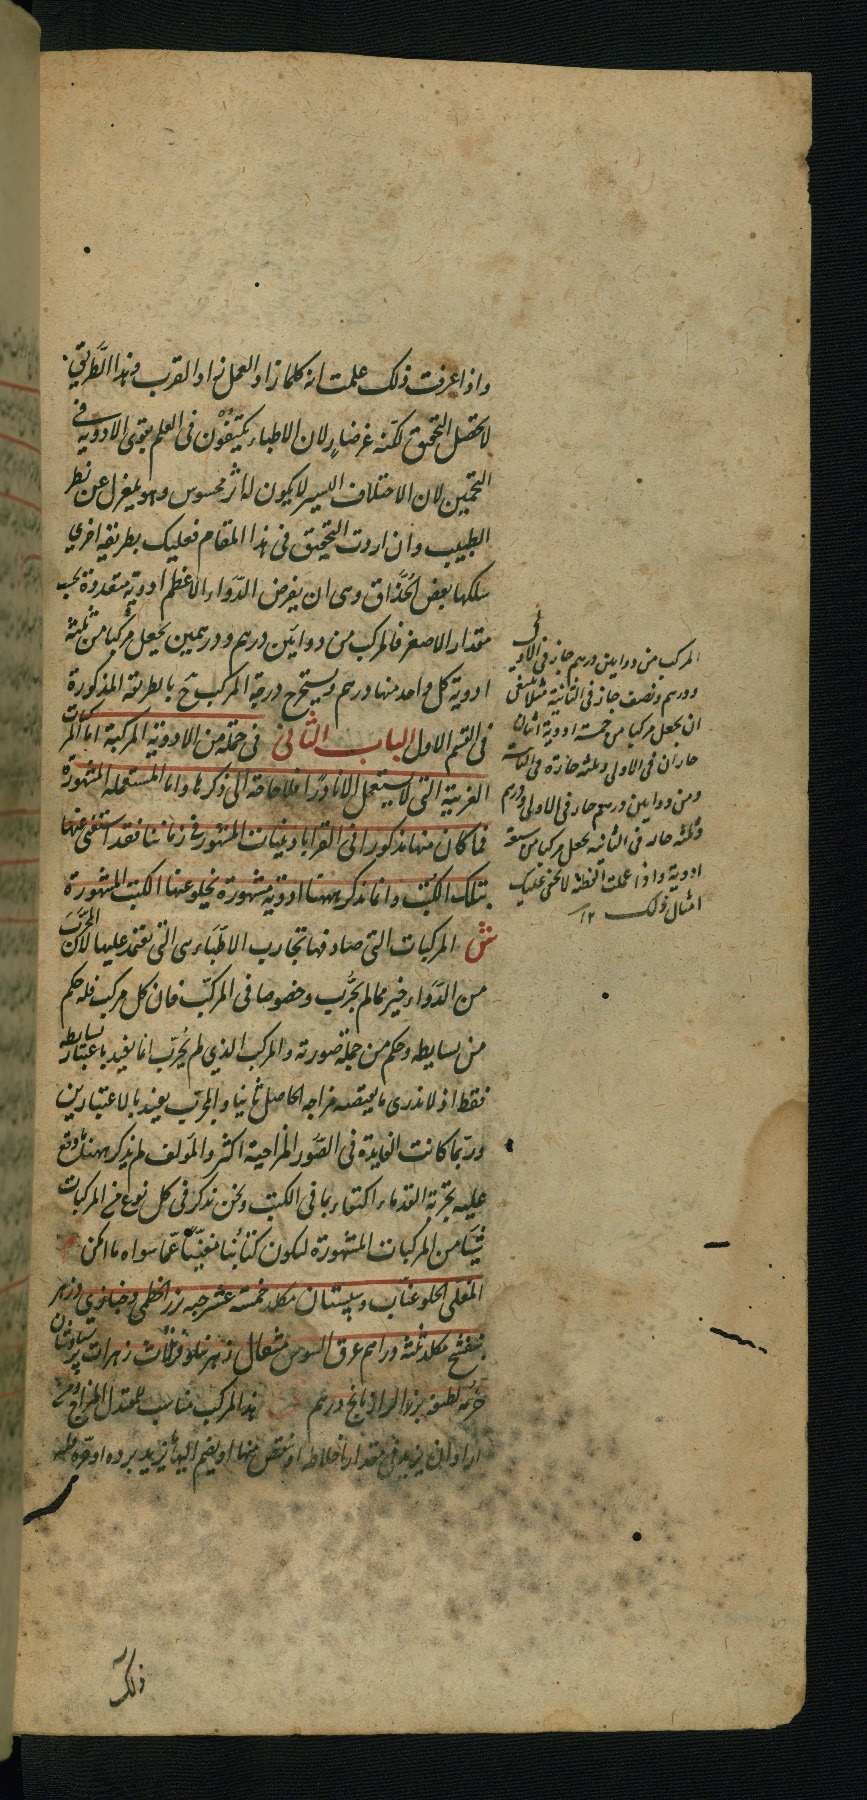 واذا عرفت ذلك علمت انه كلما زاد العمل زاد القرب وهذا الطريق
لا يحصل التحقيق لكنه غير ضار لان الاطباء يكتفون في العلم بقوى الادوية في
التخمين لان الاختلاف اليسير لا يكون له اثر محسوس وهو بمعزل عن نظر
الطبيب وان اردت التحقيق في هذا المقام فعليك بطريقة اخرى
سلكها بعض الحذاق وهى ان يفرض الدواء الاعظم ادوية متعددة بحسب
مقدار الاصغر فالمركب من دوائين درهم ودرهمين يجعل مركبا من ثلثة
ادوية كل واحد منها درهم ويستخرج درجة المركب ح بالطريقة المذكورة
في القسم الاول الباب الثاني في جملة من الادوية المركبة اما المركبات
الغريبة التى لا يستعمل الا نادرا فلا حاجة الى ذكرها واما المستعملة المشهورة
فما كان منها مذكورا في القراباذينات المشهورة في زماننا فقد استغنى عنها
بتلك الكتب وانما نذكر ههنا ادوية مشهورة يخلو عنها الكتب المشهورة
ش المركبات التى صادفها تجارب الاطباء هى التى يعتمد عليها لان المجرب
من الدواء خير مما لم يجرب وخصوصا في المركب فان كل مركب فله حكم
من بسايطه وحكم من جملة صورته والمركب الذي لم يجرب انما يفيد باعتبار بسايطه
فقط اذ لا ندرى ما يقتضيه مزاجه الحاصل ثانيا والمجرب يفيد بالاعتبارين
وربما كانت الفايدة في الصور المزاجية اكثر والمؤلف لم يذكر ههنا ما وقع
عليه تجربة القدماء اكتفاء بما في الكتب ونحن نذكر في كل نوع من المركبات
شيئا من المركبات المشهورة ليكون كتابنا مغنيا عما سواه ما امكن م
المغلى الحلو عناب وسبستان مكلد خمسة عشر حبة بزر الخطمى وخبازى وزهر
بنفسج مكلد ثلثة دراهم عرق السوس مثقال زهر نيلوفر ثلاث زهرات برسياوشان
حزمة لطيفة بزر الرازيانج درهم ش هذا المركب مناسب للمعتدل المزاج ومن
اراد ان يزيد في مقدار اخلاطه او ينقص منها او يضم اليها ما يزيد برده او حره فله
ذلك
المركب من دوايين درهم حار في الاولى
ودرهم ونصف حار في الثانية مثلا ينبغى
ان يجعل مركبا من خمسة ادوية اثنان
حاران في الاولى وثلثة حارة في الثانية
ومن دوايين درهم حار في الاولى ودرهم
وثلثة حار في الثانية يجعل مركبا من سبعة
ادوية واذا عملت الفطنة لا يخفى عليك
امثال ذلك ١٢